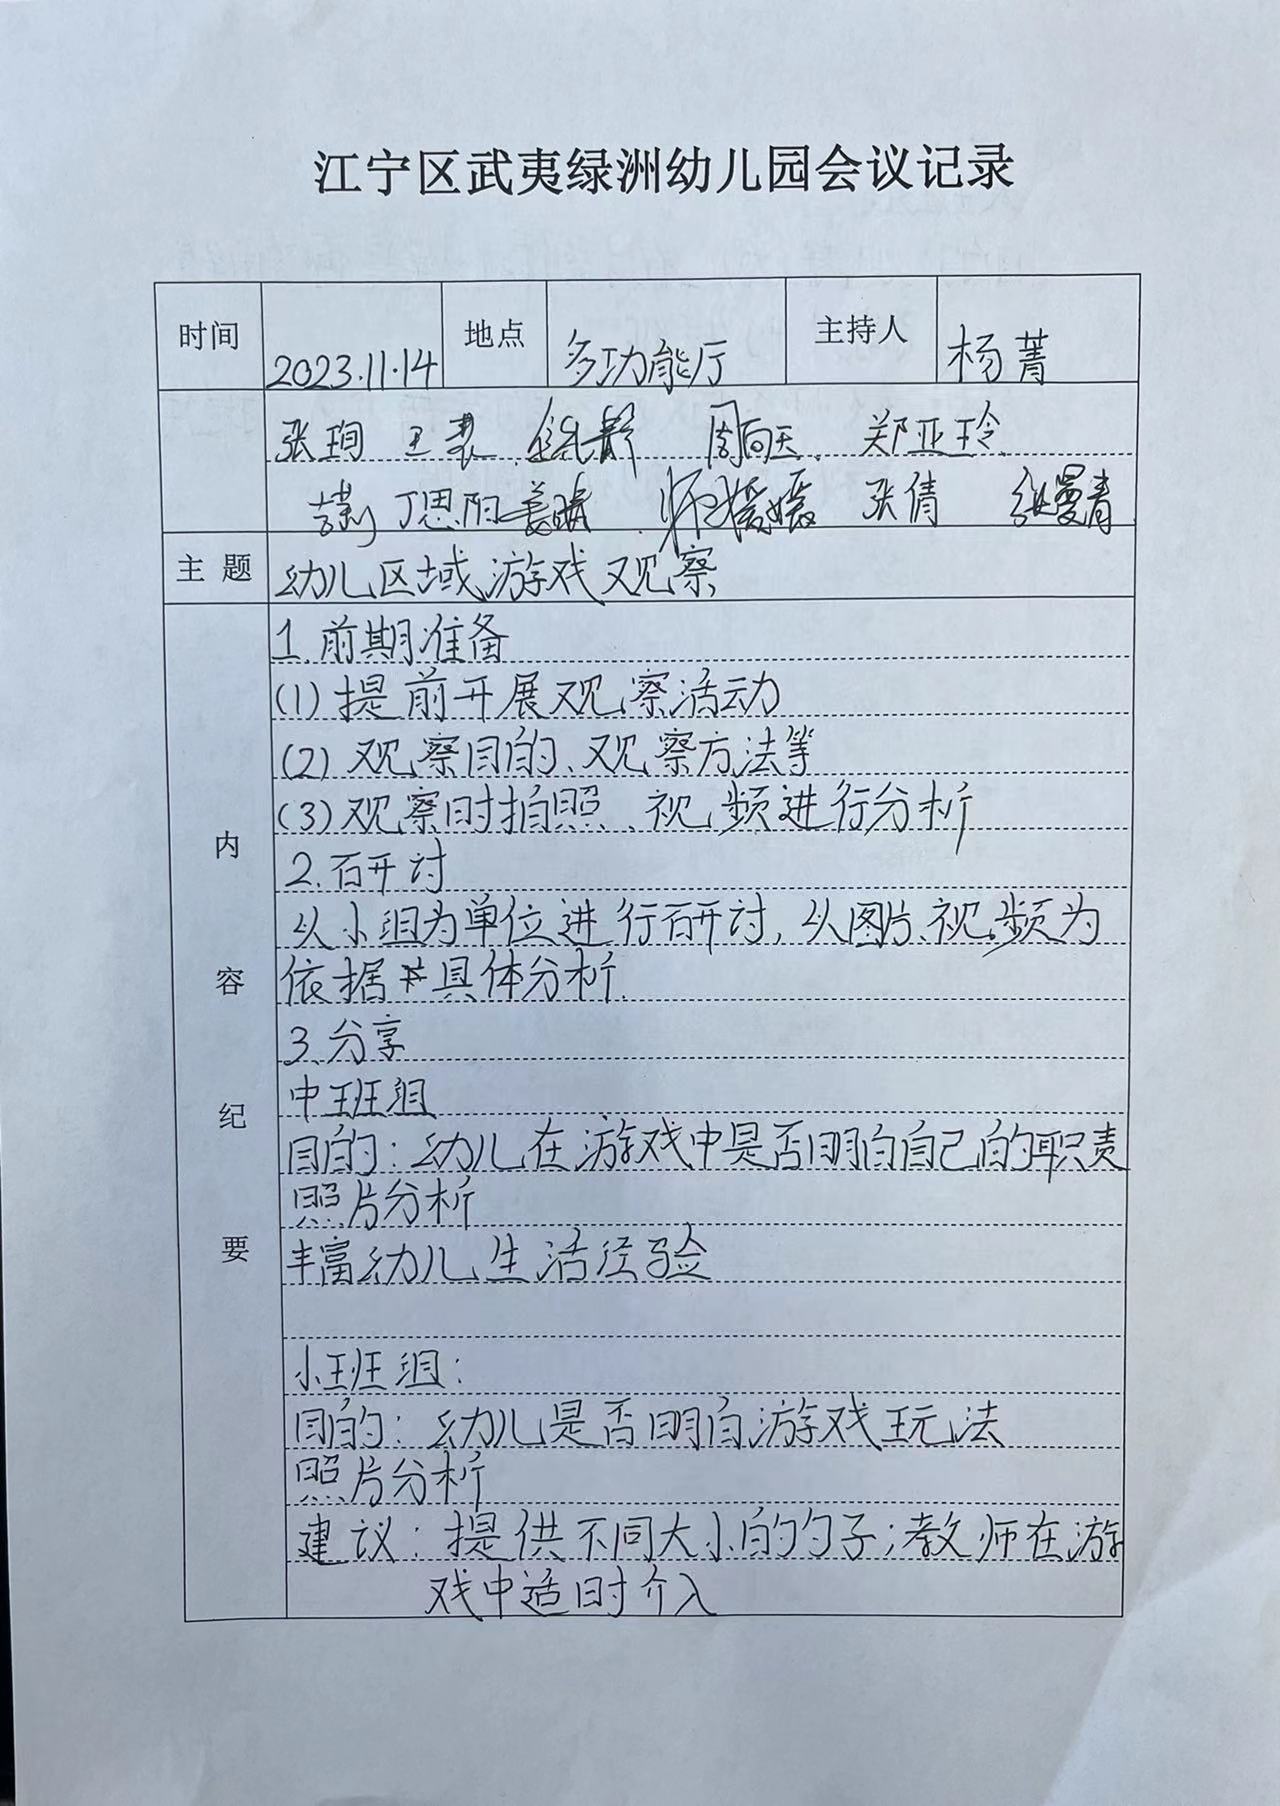 江宁区武夷绿洲幼儿园会议记录
时间 2023.11.14 地点 多功能厅 主持人 杨菁
张珣 王 周向天 郑亚玲
丁思阳 姜晴 师媛媛 张倩 张曼青
主题 幼儿区域游戏观察
内容纪要
1.前期准备
(1)提前开展观察活动
(2)观察目的、观察方法等
(3)观察时拍照、视频进行分析
2.研讨
以小组为单位进行研讨,以图片、视频为
依据 具体分析.
3.分享
中班组
目的:幼儿在游戏中是否明白自己的职责
照片分析
丰富幼儿生活经验
小班组:
目的:幼儿是否明白游戏玩法
照片分析
建议:提供不同大小的勺子;教师在游
戏中适时介入